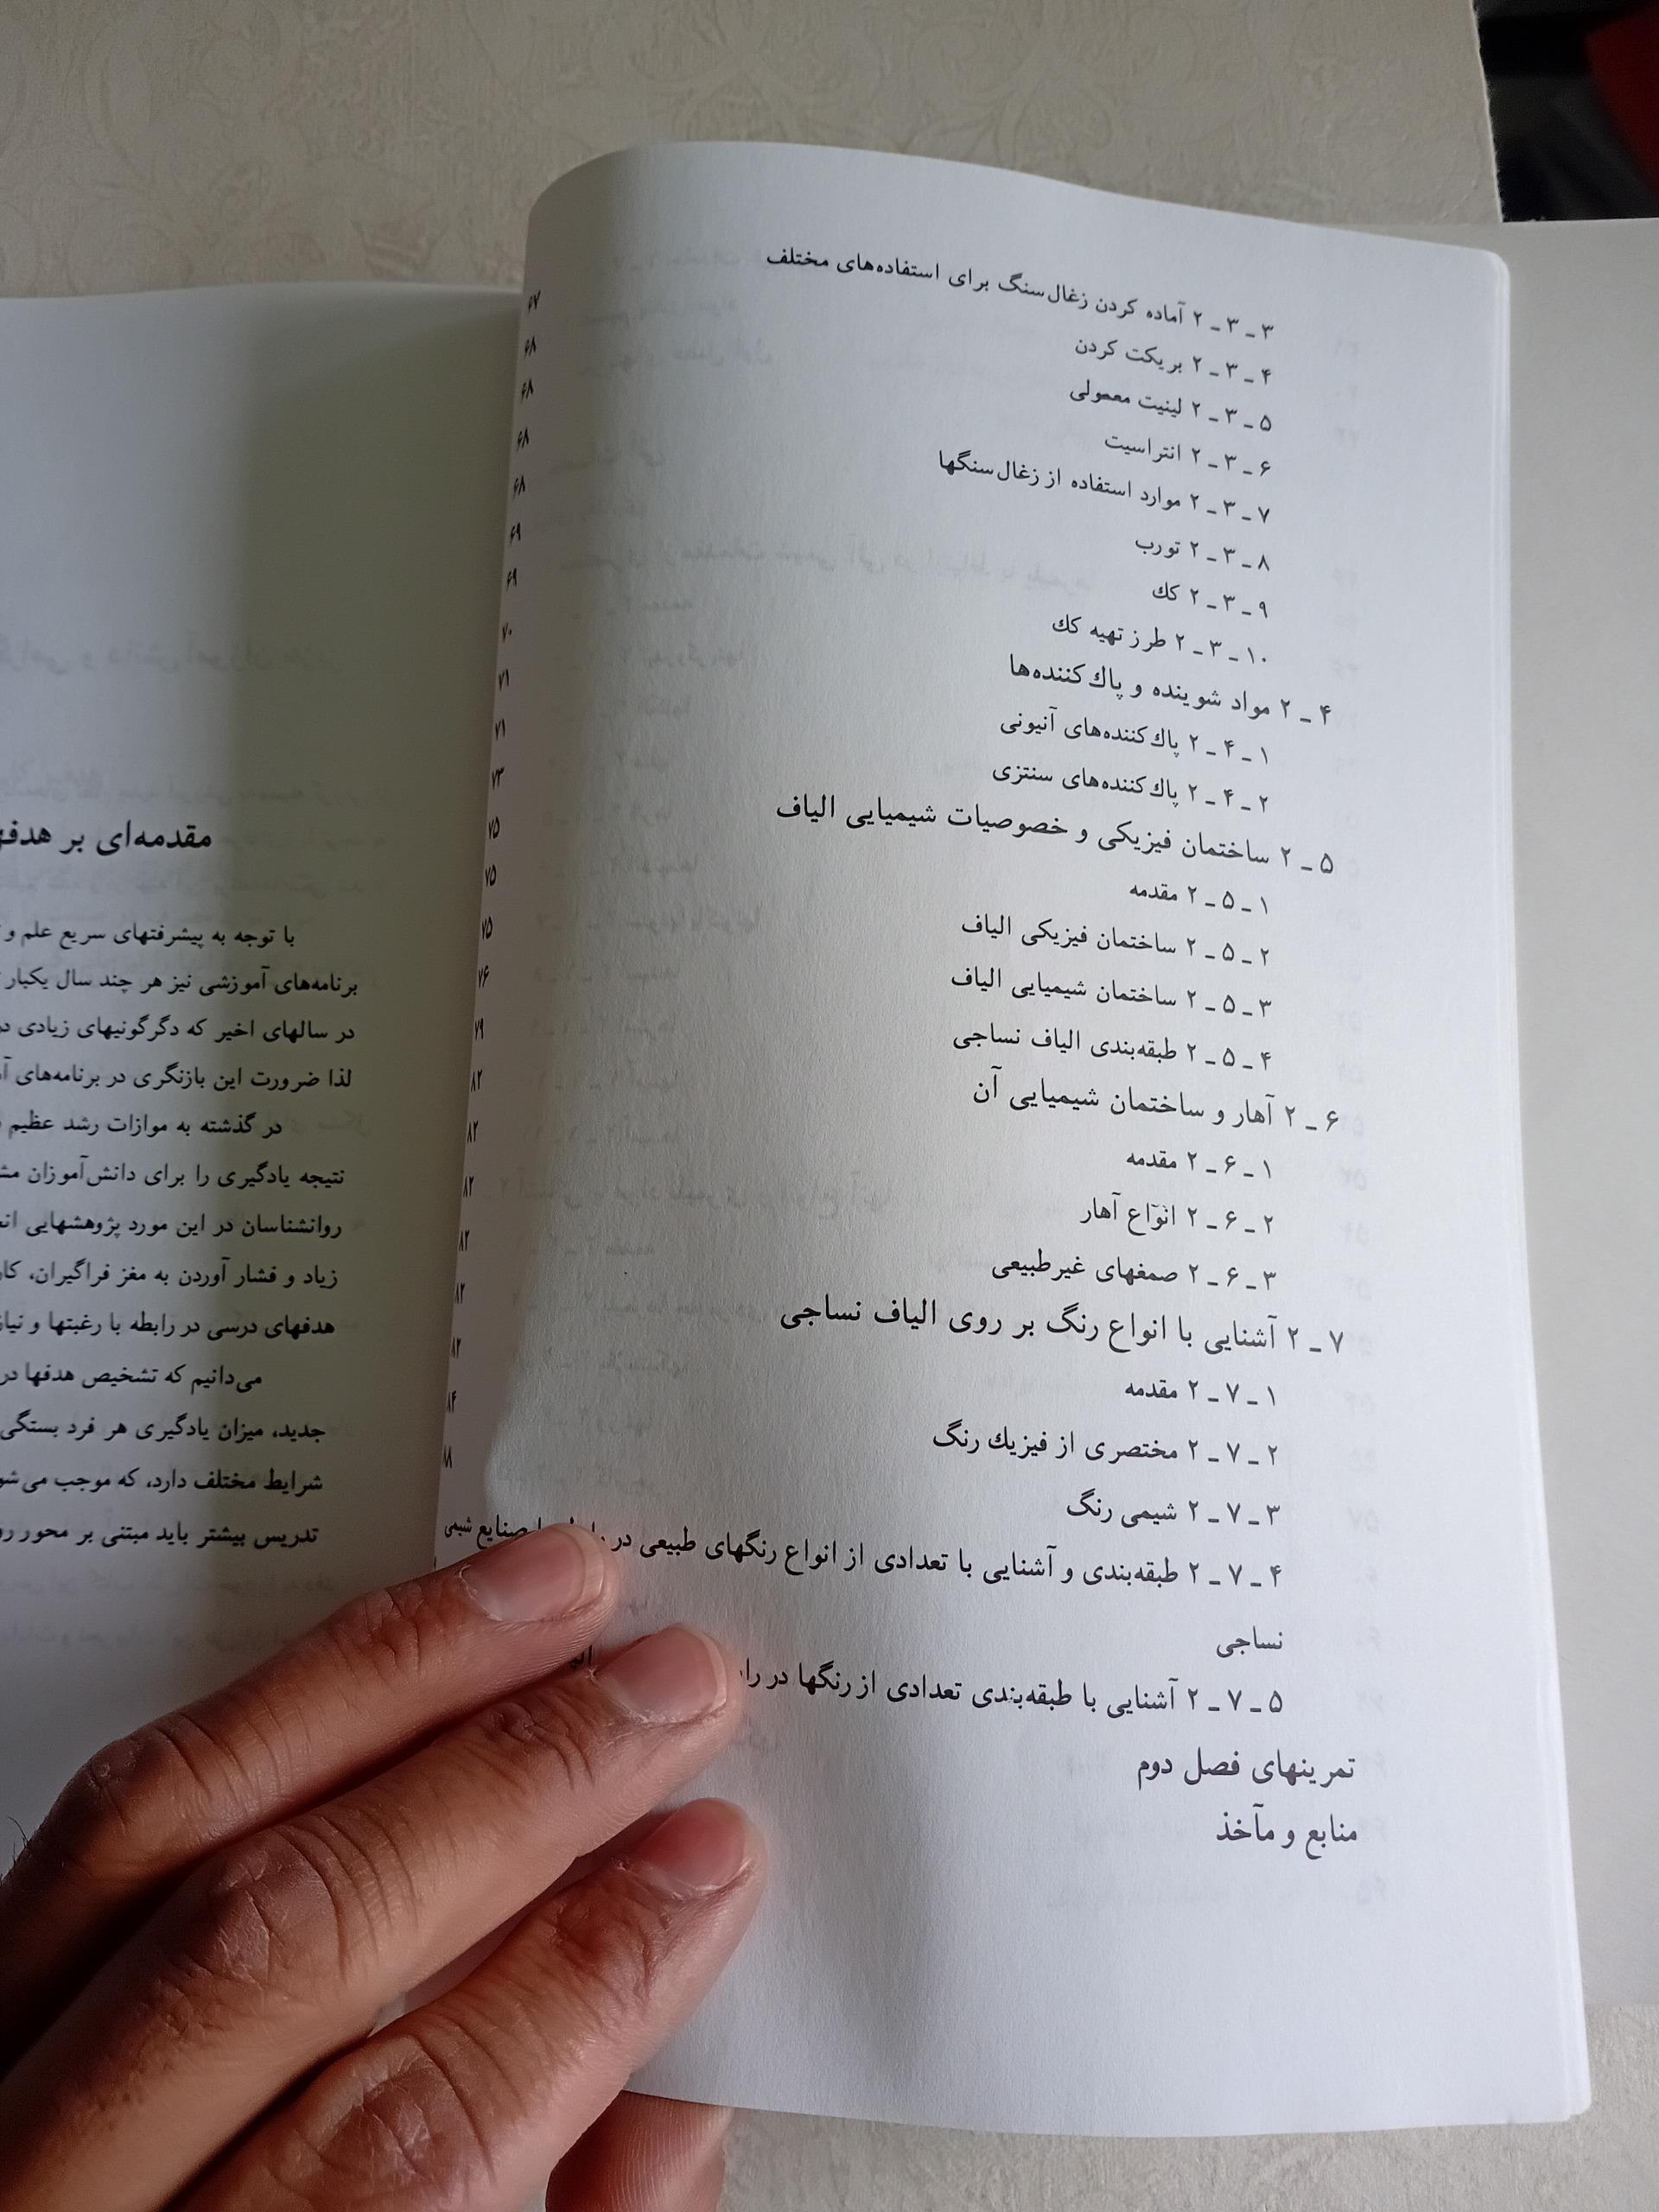 ۳ ـ ۳ ـ ۲ آماده کردن زغال‌سنگ برای استفاده‌های مختلف ۶۷
۴ ـ ۳ ـ ۲ بریکت کردن ۶۸
۵ ـ ۳ ـ ۲ لینیت معمولی ۶۸
۶ ـ ۳ ـ ۲ انتراسیت ۶۸
۷ ـ ۳ ـ ۲ موارد استفاده از زغال‌سنگها ۶۸
۸ ـ ۳ ـ ۲ تورب ۶۹
۹ ـ ۳ ـ ۲ کك ۶۹
۱۰ ـ ۳ ـ ۲ طرز تهیه کك ۷۰
۴ ـ ۲ مواد شوینده و پاك‌کننده‌ها ۷۱
۱ ـ ۴ ـ ۲ پاك‌کننده‌های آنیونی ۷۱
۲ ـ ۴ ـ ۲ پاك‌کننده‌های سنتزی ۷۳
۵ ـ ۲ ساختمان فیزیکی و خصوصیات شیمیایی الیاف ۷۵
۱ ـ ۵ ـ ۲ مقدمه ۷۵
۲ ـ ۵ ـ ۲ ساختمان فیزیکی الیاف ۷۵
۳ ـ ۵ ـ ۲ ساختمان شیمیایی الیاف ۷۶
۴ ـ ۵ ـ ۲ طبقه‌بندی الیاف نساجی ۷۹
۶ ـ ۲ آهار و ساختمان شیمیایی آن ۸۲
۱ ـ ۶ ـ ۲ مقدمه ۸۲
۲ ـ ۶ ـ ۲ انواع آهار ۸۲
۳ ـ ۶ ـ ۲ صمغهای غیرطبیعی ۸۲
۷ ـ ۲ آشنایی با انواع رنگ بر روی الیاف نساجی ۸۲
۱ ـ ۷ ـ ۲ مقدمه ۸۲
۲ ـ ۷ ـ ۲ مختصری از فیزیك رنگ ۸۴
۳ ـ ۷ ـ ۲ شیمی رنگ ۸۸
۴ ـ ۷ ـ ۲ طبقه‌بندی و آشنایی با تعدادی از انواع رنگهای طبیعی در صنایع شیمی
نساجی
۵ ـ ۷ ـ ۲ آشنایی با طبقه‌بندی تعدادی از رنگها در
تمرینهای فصل دوم
منابع و مآخذ
مقدمه‌ای بر
با توجه به پیشرفتهای سریع علم و
برنامه‌های آموزشی نیز هر چند سال یکبار
در سالهای اخیر که دگرگونیهای زیادی
لذا ضرورت این بازنگری در برنامه‌های
در گذشته به موازات رشد عظیم
نتیجه یادگیری را برای دانش‌آموزان
روانشناسان در این مورد پژوهشهایی
زیاد و فشار آوردن به مغز فراگیران،
هدفهای درسی در رابطه با رغبتها و
می‌دانیم که تشخیص هدفها در
جدید، میزان یادگیری هر فرد بستگی
شرایط مختلف دارد، که موجب
تدریس بیشتر باید مبتنی بر محور